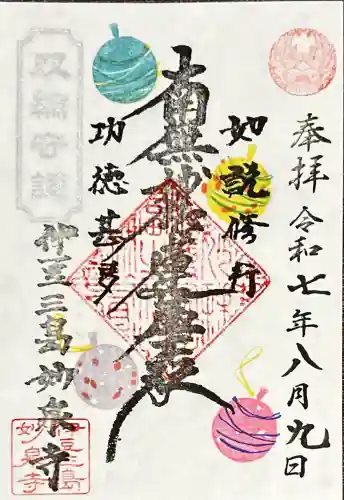 奉拝 令和七年八月九日
如説修行
南無妙法蓮華経
功徳甚多
伊豆三島妙泉寺
伊豆三島
妙泉寺